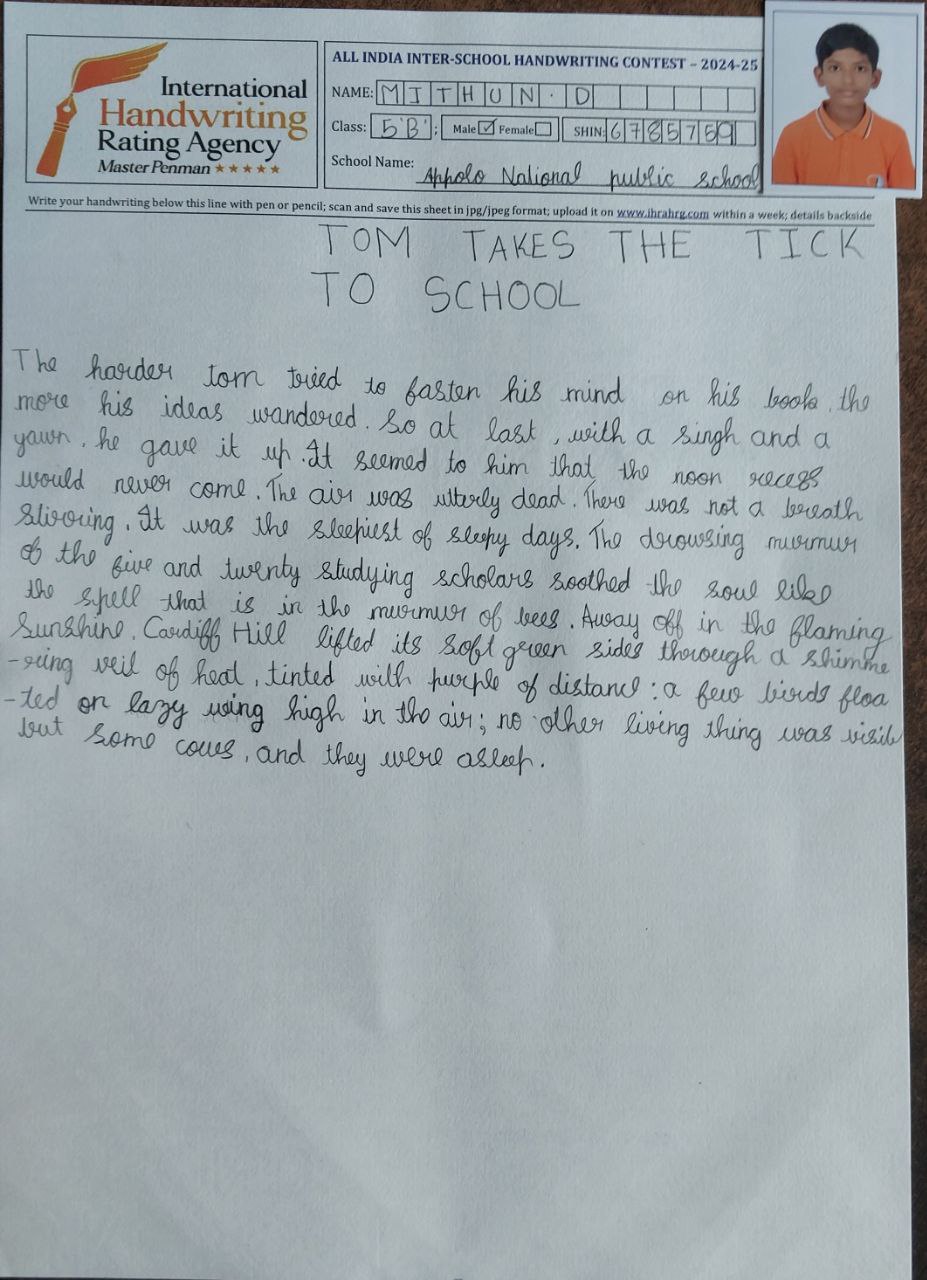 International
Handwriting
Rating Agency
Master Penman ★★★★★
ALL INDIA INTER-SCHOOL HANDWRITING CONTEST – 2024-25
NAME: MITHUN. D
Class: 5'B'; Male ☑ Female ☐ SHIN: 6785769
School Name: Appolo National public school
Write your handwriting below this line with pen or pencil; scan and save this sheet in jpg/jpeg format; upload it on www.ihrahrg.com within a week; details backside
TOM TAKES THE TICK
TO SCHOOL
The harder tom tried to fasten his mind on his book, the
more his ideas wandered. So at last, with a singh and a
yawn, he gave it up. It seemed to him that the noon recess
would never come. The air was utterly dead. There was not a breath
stirring. It was the sleepiest of sleepy days. The drowsing murmur
of the five and twenty studying scholars soothed the soul like
the spell that is in the murmur of bees. Away off in the flaming
Sunshine, Cardiff Hill lifted its soft green sides through a shimme
-ring veil of heat, tinted with purple of distance: a few birds floa
-ted on lazy wing high in the air; no other living thing was visib
but some cows, and they were asleep.